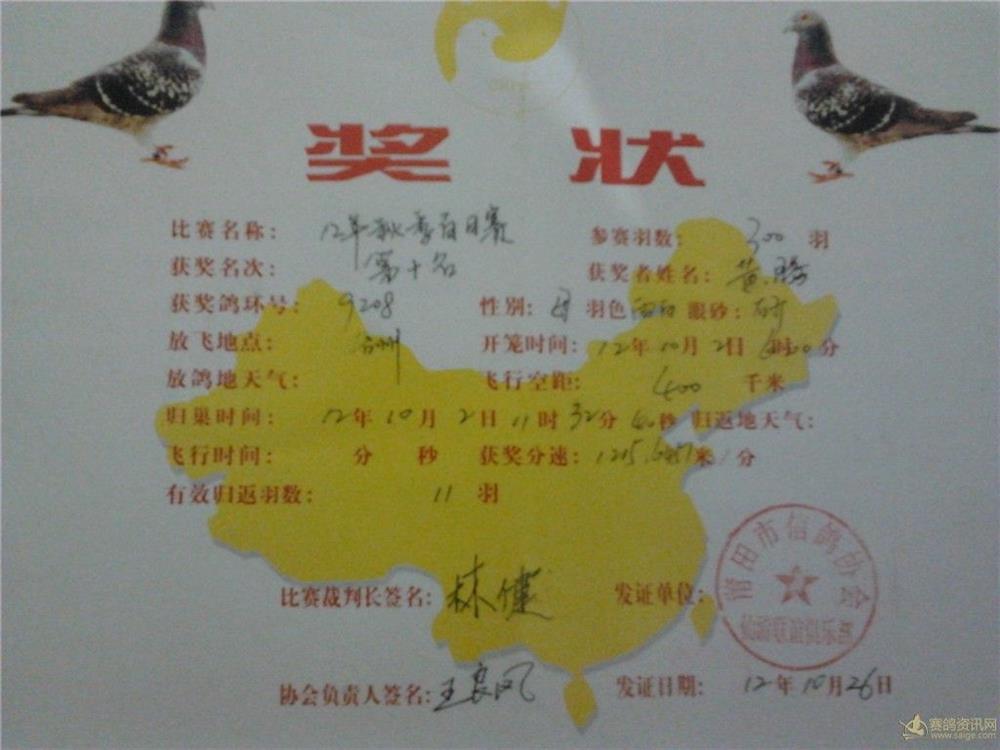 奖 状
比赛名称： 12年秋季百日赛 参赛羽数： 300 羽
获奖名次： 第十名 获奖者姓名： 黄
获奖鸽环号： 9208 性别： 羽色 眼砂：
放飞地点： 台州 开笼时间： 12年10月2日 6时 分
放鸽地天气： 飞行空距： 400 千米
归巢时间： 12年10月2日11时32分 秒 归返地天气：
飞行时间： 分 秒 获奖分速： 米/分
有效归返羽数： 11 羽
比赛裁判长签名： 林健 发证单位：
莆田市信鸽协会
仙游联谊俱乐部
协会负责人签名： 王良风 发证日期： 12年10月26日
赛鸽资讯网
www.saige.com